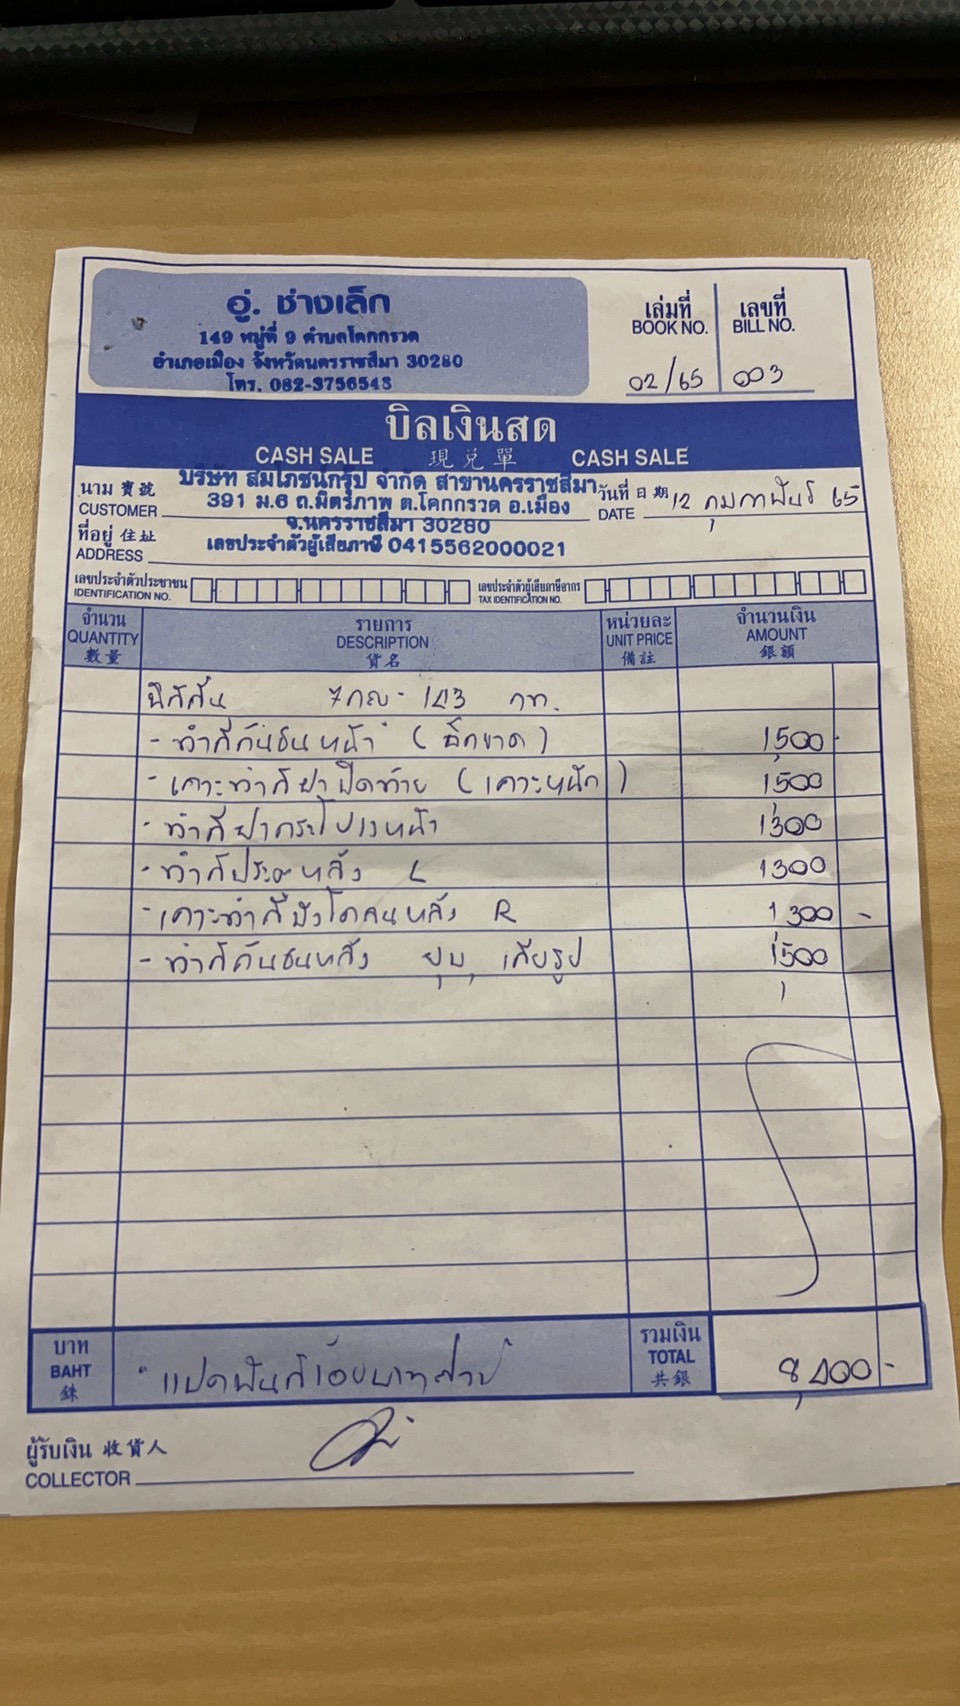 อู่. ช่างเล็ก
149 หมู่ที่ 9 ตำบลโคกกรวด
อำเภอเมือง จังหวัดนครราชสีมา 30280
โทร. 082-3756543
เล่มที่ เลขที่
BOOK NO. BILL NO.
02/65 003
บิลเงินสด
CASH SALE 現兌單 CASH SALE
บริษัท สมโภชน์กรุ๊ป จำกัด สาขานครราชสีมา
391 ม.6 ถ.มิตรภาพ ต.โคกกรวด อ.เมือง
จ.นครราชสีมา 30280
เลขประจำตัวผู้เสียภาษี 0415562000021
นาม 寶號
CUSTOMER
วันที่ 日期 12 กุมภาพันธ์ 65
DATE
ที่อยู่ 住址
ADDRESS
เลขประจำตัวประชาชน เลขประจำตัวผู้เสียภาษีอากร
IDENTIFICATION NO. TAX IDENTIFICATION NO.
จำนวน รายการ หน่วยละ จำนวนเงิน
QUANTITY DESCRIPTION UNIT PRICE AMOUNT
數量 貨名 備註 銀額
นิสสัน 7กญ - 143 กท.
- ทำสีกันชนหน้า (ฉีกขาด) 1,500 -
- เคาะทำสีฝาปิดท้าย (เคาะหนัก) 1,500
- ทำสีฝากระโปรงหน้า 1,300
- ทำสีประตูหลัง L 1300
- เคาะทำสีบังโคลนหลัง R 1,300 -
- ทำสีกันชนหลัง ยุบ, เสียรูป 1,500
บาท รวมเงิน
BAHT แปดพันสี่ร้อยบาทถ้วน TOTAL 8,400 -
銖 共銀
ผู้รับเงิน 收貨人
COLLECTOR